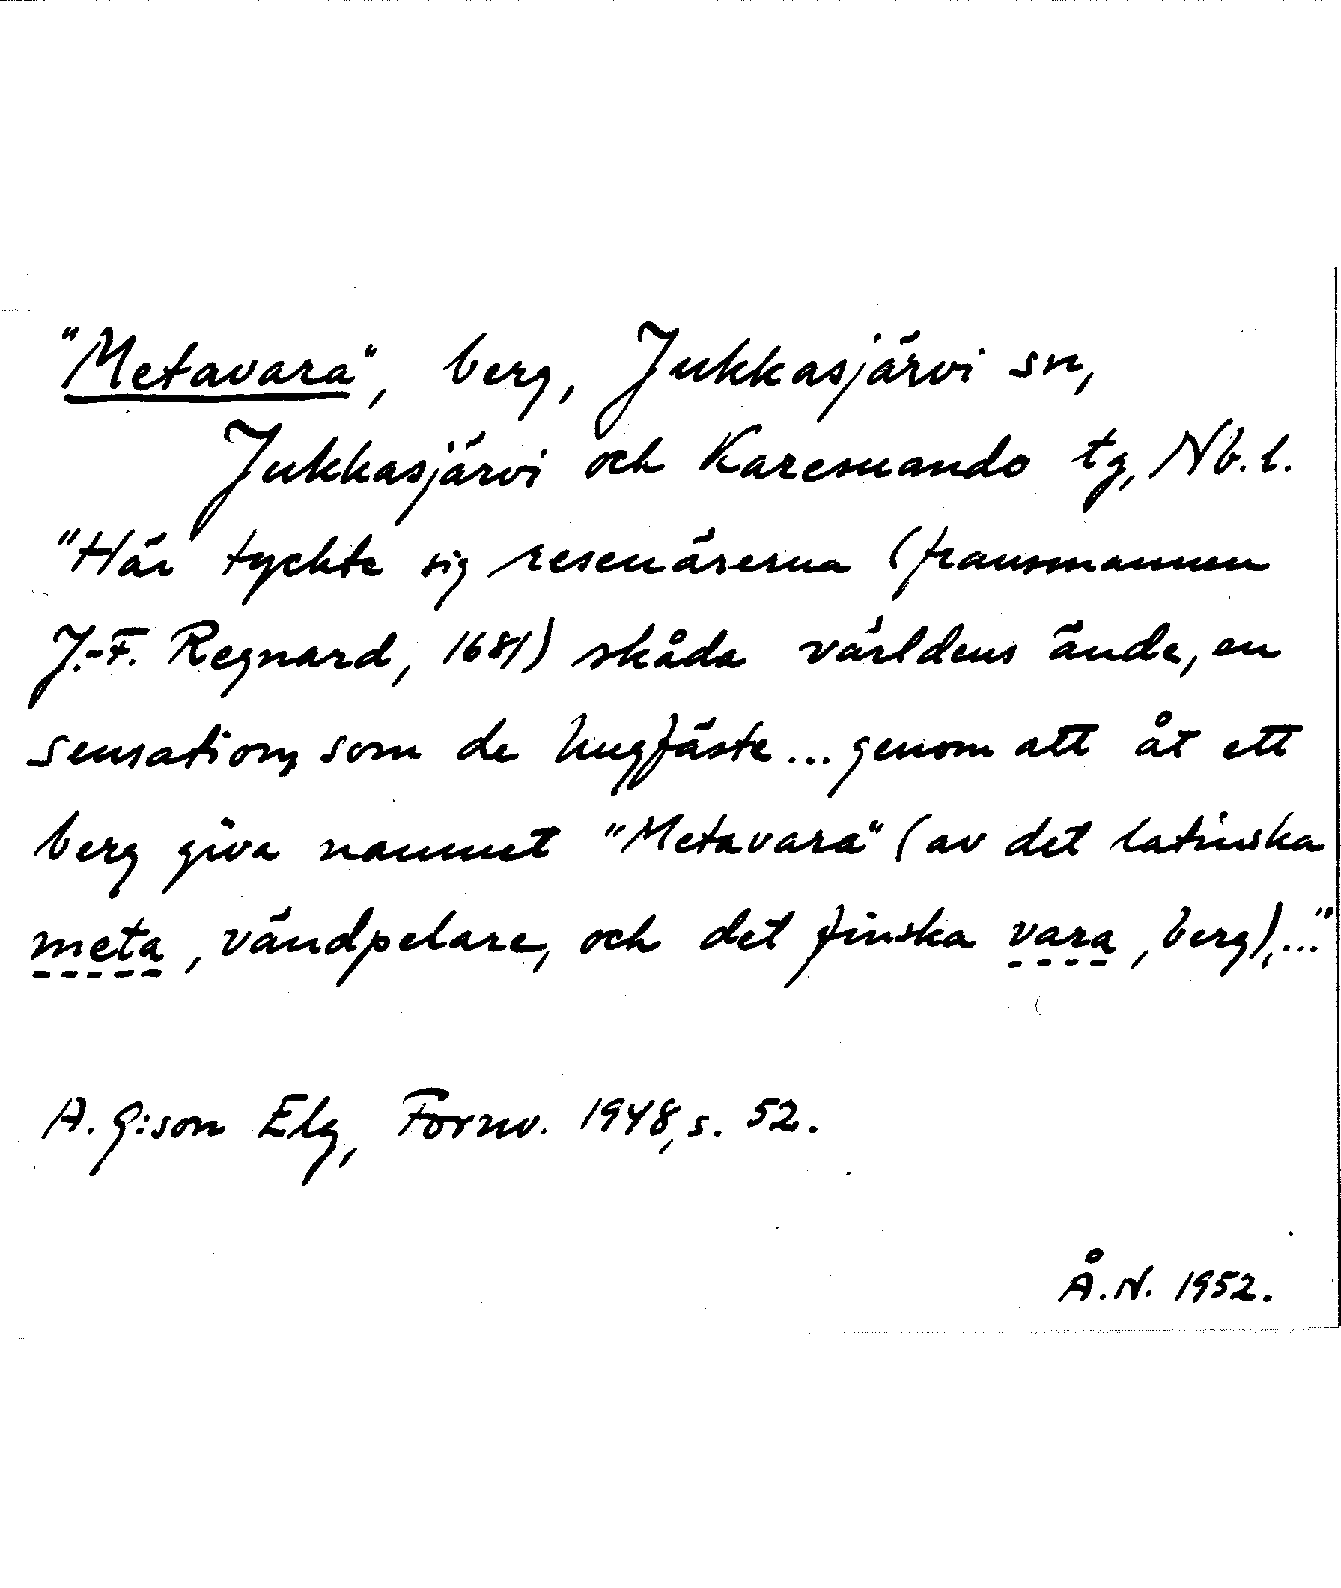 "Metavara", berg, Jukkasjärvi sn,
Jukkasjärvi och Karesuando tg, Nb. l.
"Här tyckte sig resenärerna (fransmannen
J.-F. Regnard, 1681) skåda världens ände, en
sensation, som de hugfäste... genom att åt ett
berg giva namnet "Metavara" (av det latinska
meta, vändpelare, och det finska vara, berg),..."
A. G:son Elg, Fornv. 1948, s. 52.
Å.N. 1952.